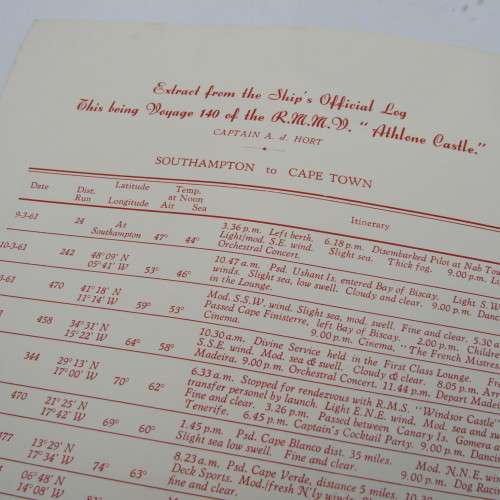 Extract from the Ship's Official Log
This being Voyage 140 of the R.M.M.V. "Athlone Castle."
CAPTAIN A. J. HORT
SOUTHAMPTON to CAPE TOWN
Date Dist. Run Latitude Longitude Temp. at Noon Air Sea Itinerary
9-3-61 24 At Southampton 47° 44° 3.36 p.m. Left berth. 6.18 p.m. Disembarked Pilot at Nab
Light/mod. S.E. wind. Slight sea. Thick fog. 9.00 p.m.
Orchestral Concert.
10-3-61 242 48° 09' N 05° 41' W 53° 46° 10.47 a.m. Psd. Ushant Is. entered Bay of Biscay. Light S.W.
winds. Slight sea, low swell. Cloudy and clear. 9.00 p.m.
in the Lounge.
3-61 470 41° 18' N 11° 14' W 59° 53° Mod. S.S.W. wind. Slight sea, mod. swell. Fine and clear. 5.30
Passed Cape Finisterre, left Bay of Biscay. 2.00 p.m.
Cinema. 9.00 p.m. Cinema, "The French
458 34° 31' N 15° 22' W 64° 58° 10.30 a.m. Divine Service held in the First Class Lounge.
S.S.E. wind. Mod. sea & swell. Cloudy & clear. 8.05 p.m.
Madeira. 9.00 p.m. Orchestral Concert. 11.44 p.m. Depart
344 29° 13' N 17° 00' W 70° 62° 6.33 a.m. Stopped for rendezvous with R.M.S. "Windsor
transfer personel by launch. Light E.N.E. wind. Mod. sea and
Fine and clear. 3.26 p.m. Passed between Canary Is. Gomera
Tenerife. 6.45 p.m. Captain's Cocktail Party. 9.00 p.m.
470 21° 25' N 17° 42' W 69° 60° 1.45 p.m. Psd. Cape Blanco dist. 35 miles. Mod. N.N.E.
Slight sea low swell. Fine and clear. 9.00 p.m. Dog
477 13° 29' N 17° 34' W 74° 63° 8.23 a.m. Psd. Cape Verde, distance 5 miles.
Deck Sports. Mod./fresh N'ly winds.
06° 48' N
14°